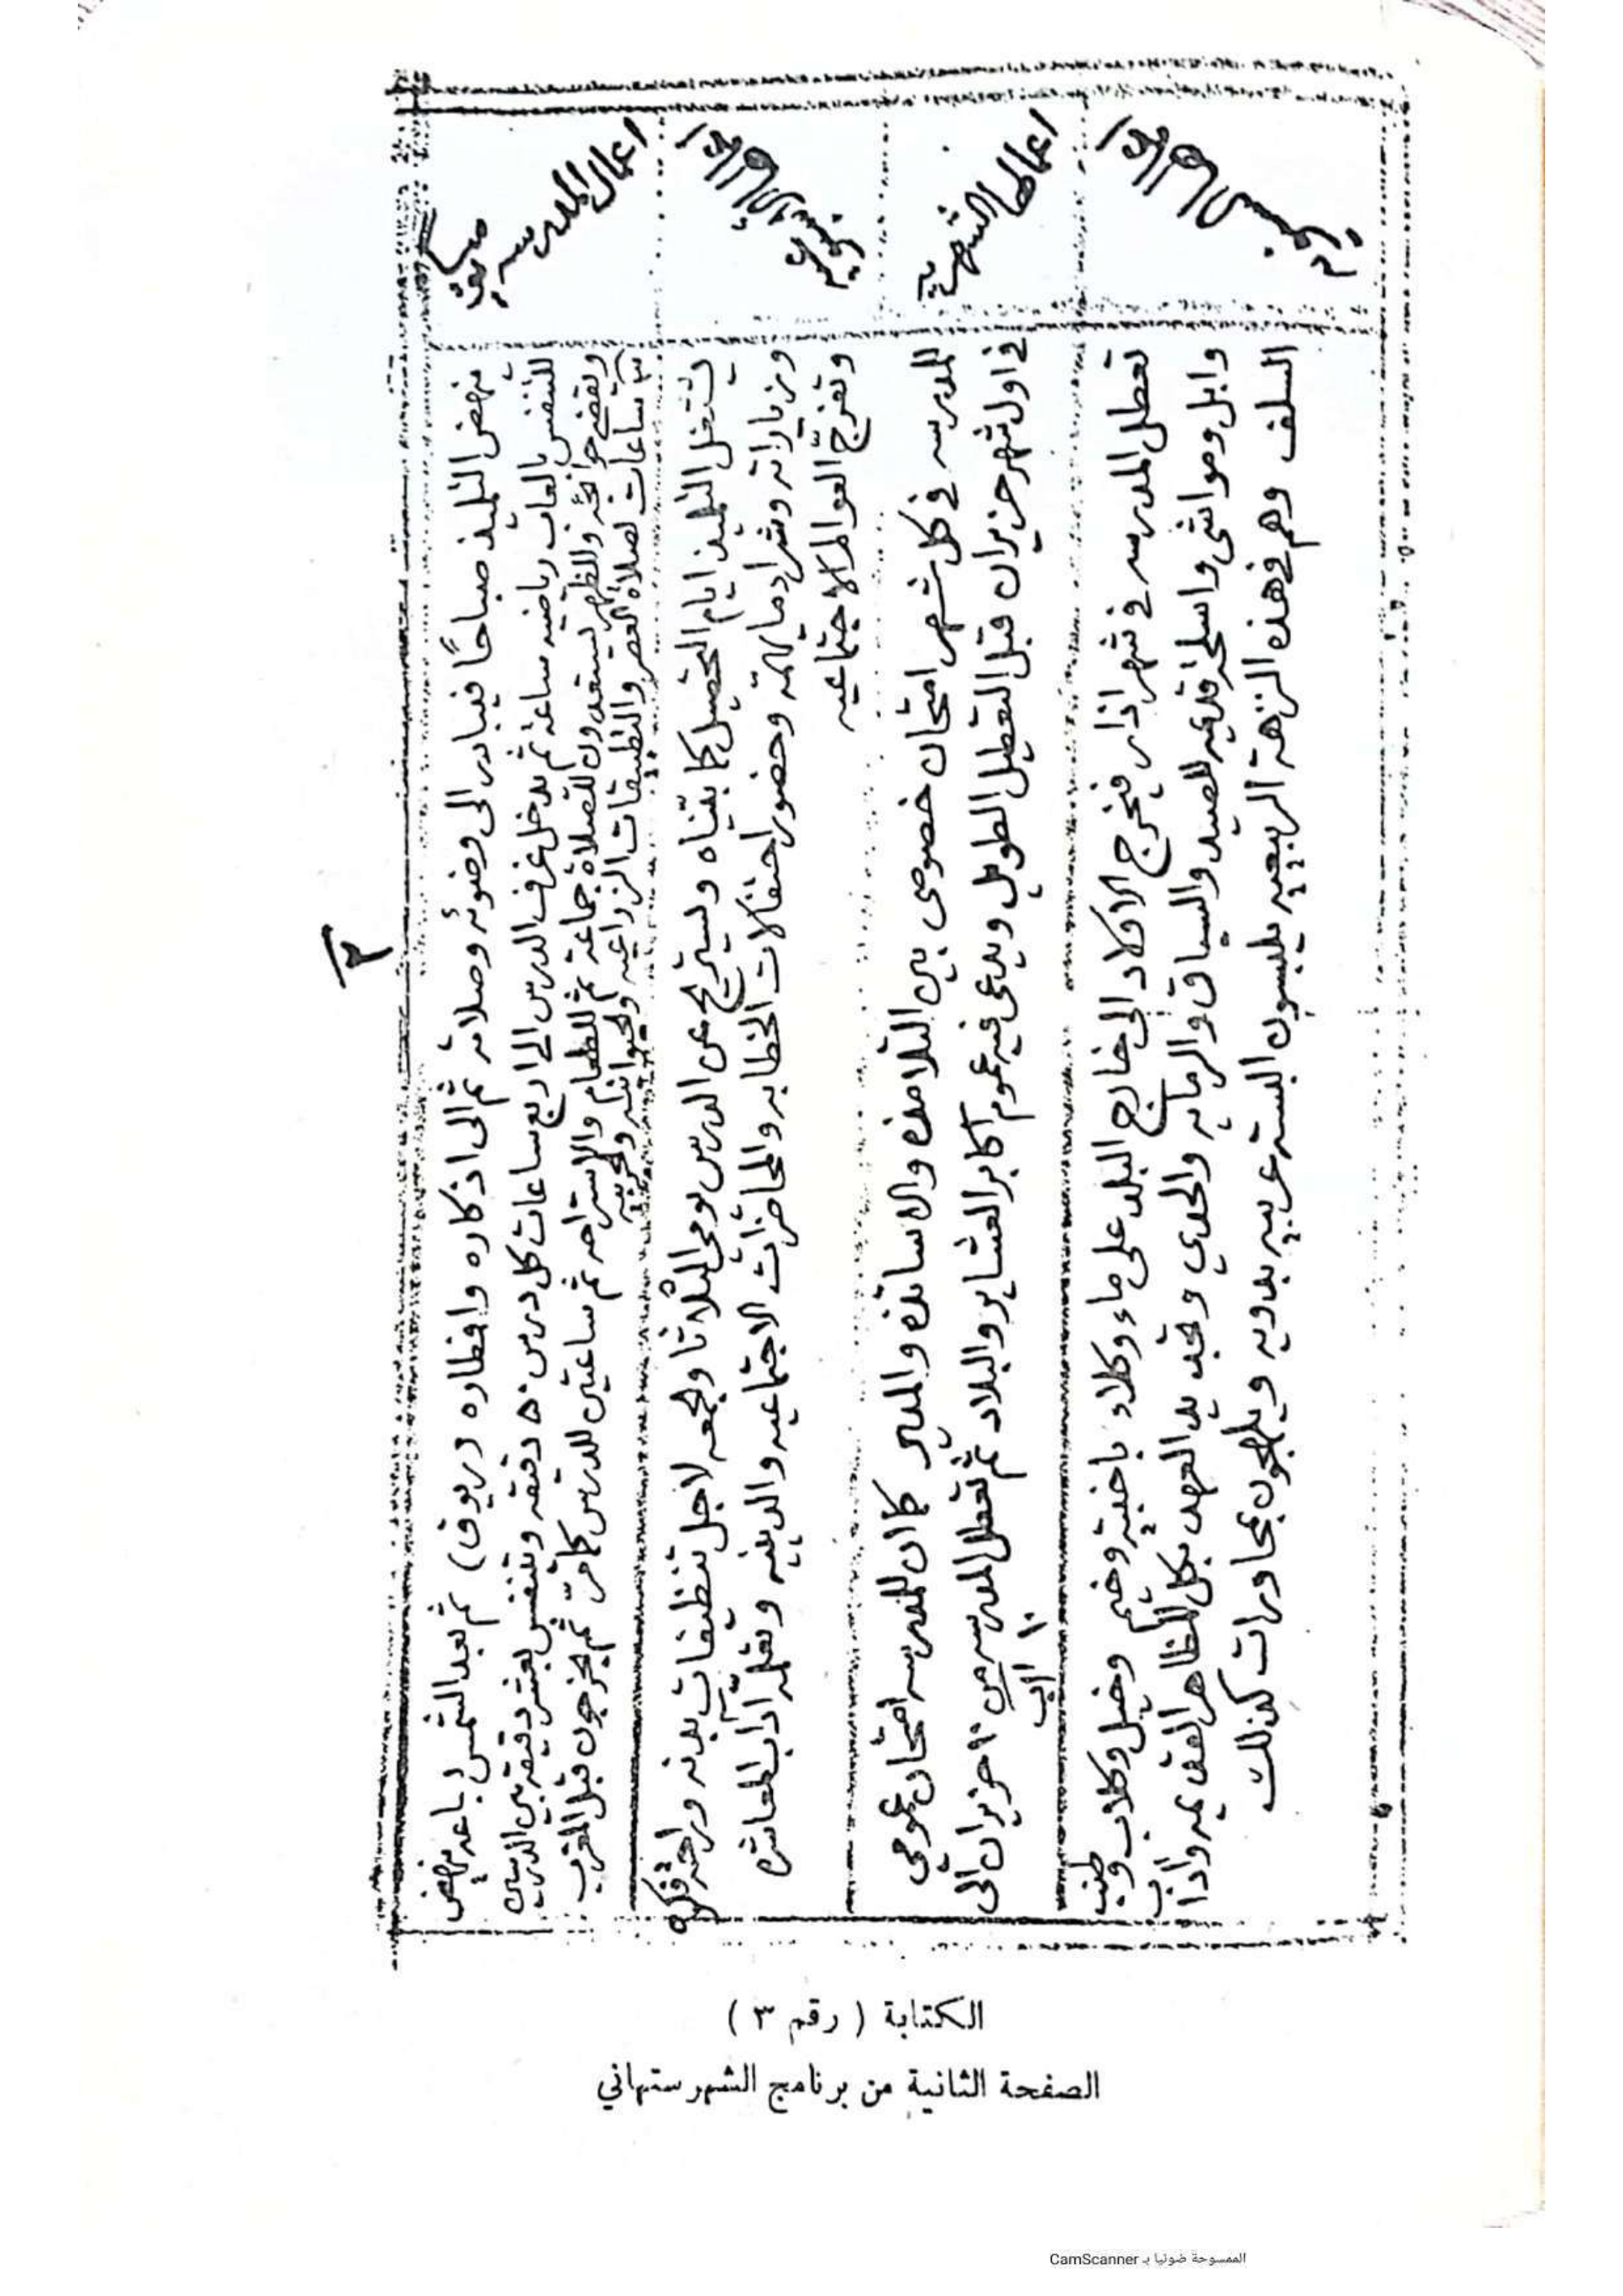 ٢
اعمال المدرسه
ينهض التلميذ صباحًا فيبادر الى وضوئه وصلاته ثم الى اذكاره وافطاره (ريوق) ثم بعد الشمس بساعه ينهض
للتنفس بالعاب رياضيه ساعة ثم يدخل غرف الدرس الى اربع ساعات كل درس ٥٠ دقيقه وتنفس بعشر دقيقه بين الدرسين
ويقضى حوائجه والظهر يستعدون للصلاة جماعة ثم للطعام والاستراحه ثم ساعتين للدرس كما مرّ ثم يخرجون قبل المغرب
ساعات لصلاة العصر والتطبيقات الزراعيه والحيوانيه
يشتغل التلميذ ايام التحصيل كما بيّناه ويستريح عن الدرس يومي الثلاثا والجمعه لاجل تنظيفات بدنه وراحة فكره
وزياراته وشراء مايهمّه وحضور احتفالات الخطابه والمحاضرات الاجتماعيه والدينيه وتعلّمه آداب المعاشره
وتفرّج العوالم الاجتماعيه
اعمالها الشهرية
للمدرسه في كل شهر امتحان خصوصى بين التلامذه والاساتذه والمدير كما ان للمدرسه امتحان عمومي
في اول شهر حزيران قبل التعطيل الطويل ويدعى فيه عموم اكابر العشاير والبلاد ثم تعطل المدرسه من ١٠ حزيران الى
١٠ اب
تعطل المدرسه في شهر اذار فيخرج الاولاد الى خارج البلد على ماء وكلاء باخبية وخيم وخيل وكلاب
وابل ومواشى واسلحة قديمه للصيد والسباق والرمايه والحدي وتجديد العهد بكل المظاهر القديمه واداب
السلف وهم في هذه النزهة الربيعيه يلبسون البسة عربيه بدويه ويلهجون بمحاورات كذلك
الكتابة ( رقم ٣ )
الصفحة الثانية من برنامج الشهرستهاني
الممسوحة ضوئيا بـ CamScanner